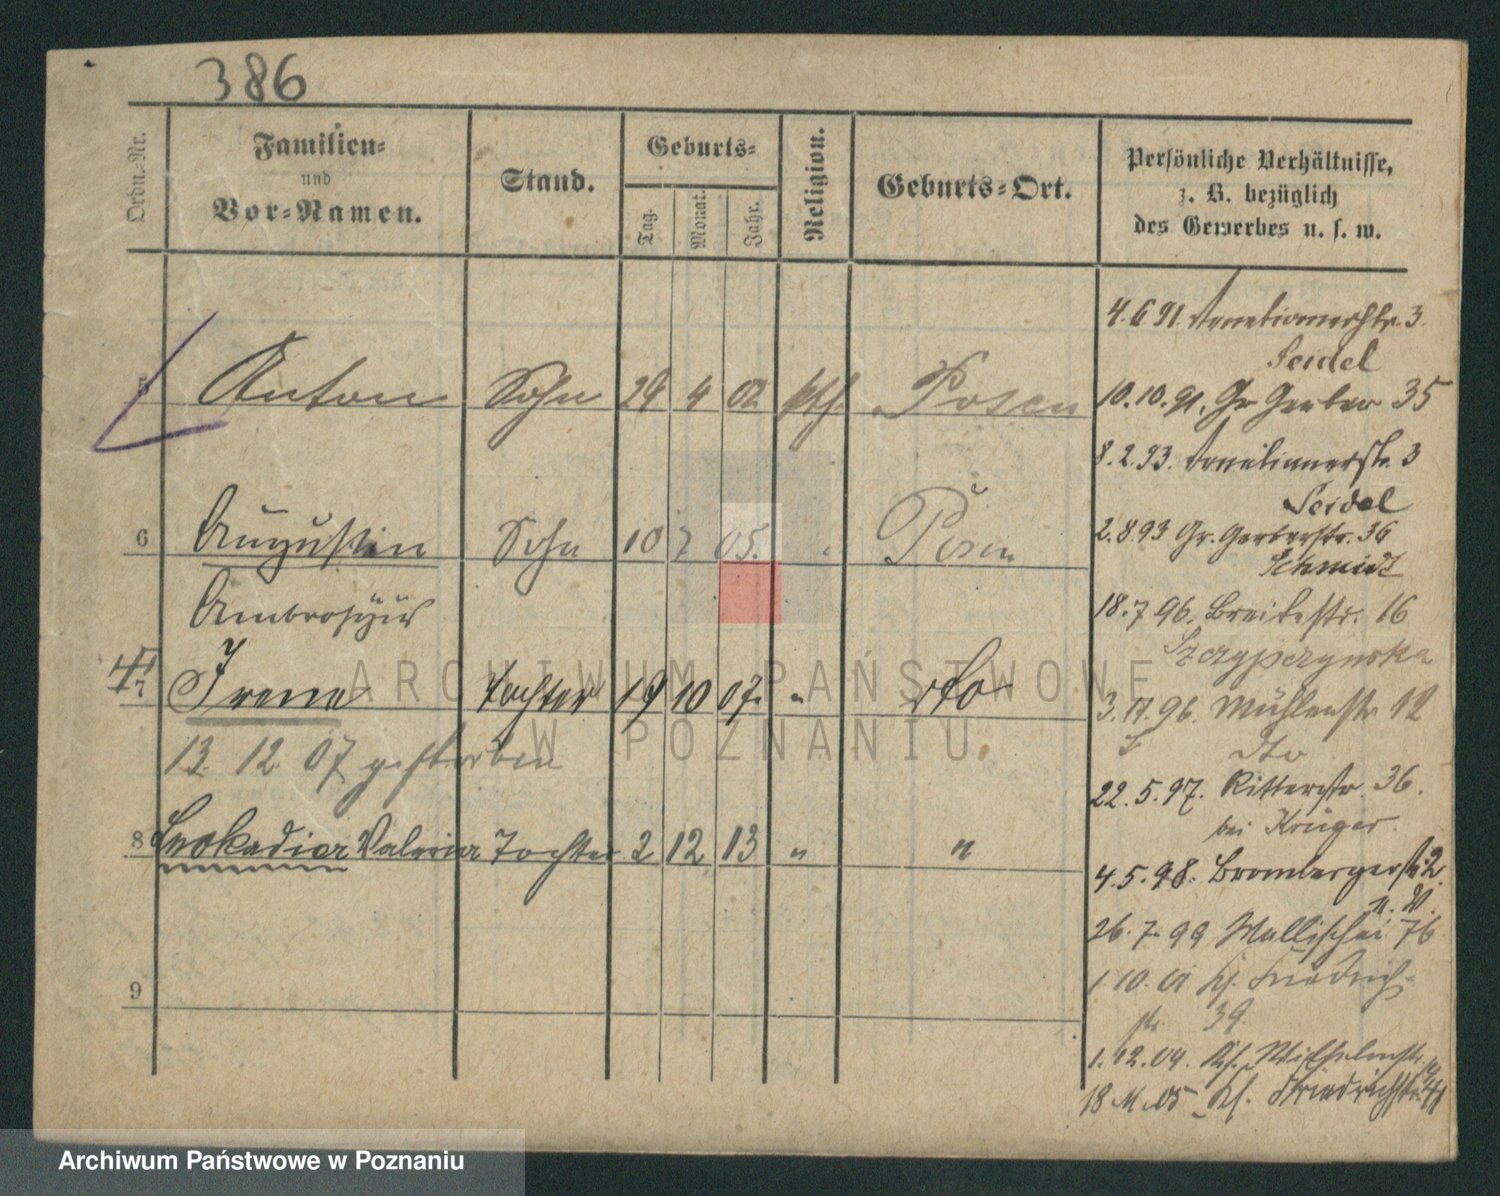 386
Ordn.-Nr.
Familien-
und
Vor-Namen.
Stand.
Geburts-
Tag.
Monat.
Jahr.
Religion.
Geburts-Ort.
Persönliche Verhältnisse,
z. B. bezüglich
des Gewerbes u. s. w.
5 Anton Sohn 29 4 02 kth. Posen
6 Augustin Sohn 10 7 05. Posen
Ambrosius
7 Irene Tochter 19 10 07. " dto
13. 12. 07 gestorben
8 Leokadia Valeria Tochter 2 12 13 " "
9
4. 6 91. Venetianerstr. 3.
Seidel
10. 10. 91. Gr Gerber 35
8. 2. 93. Venetianerstr. 3
Seidel
2. 8. 93 Gr. Gerberstr. 36
Schmidt
18. 7 96. Breitestr. 16
Szczypczynska
3. 11. 96. Mühlenstr 12
dto
22. 5. 97. Ritterstr 36.
bei Krüger.
4. 5. 98. Brombergerstr. 2.
26. 7. 99 Wallischei 76
1. 10. 01 Kl. Friedrich-
str. 39
1. 12. 04. Wilhelmstr.
18. 11. 05 Kl. Friedrichstr. 11
ARCHIWUM PAŃSTWOWE
W POZNANIU
Archiwum Państwowe w Poznaniu